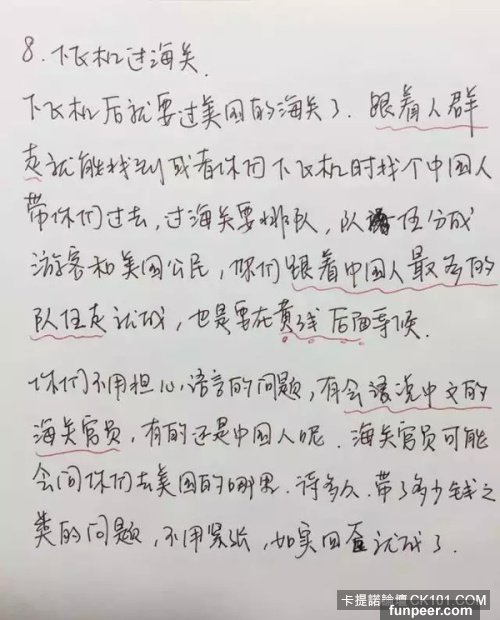 8. 下飞机过海关.
下飞机后就要过美国的海关了. 跟着人群
走就能找到或者你们下飞机时找个中国人
带你们过去, 过海关要排队, 队伍分成
游客和美国公民, 你们跟着中国人最多的
队伍走就成, 也是要在黄线后面等候.
你们不用担心语言的问题, 有会说中文的
海关官员, 有的还是中国人呢. 海关官员可能
会问你们去美国的哪里. 待多久. 带了多少钱之
类的问题, 不用紧张, 如实回答就成了.
卡提諾論壇 CK101.COM
funpeer.com